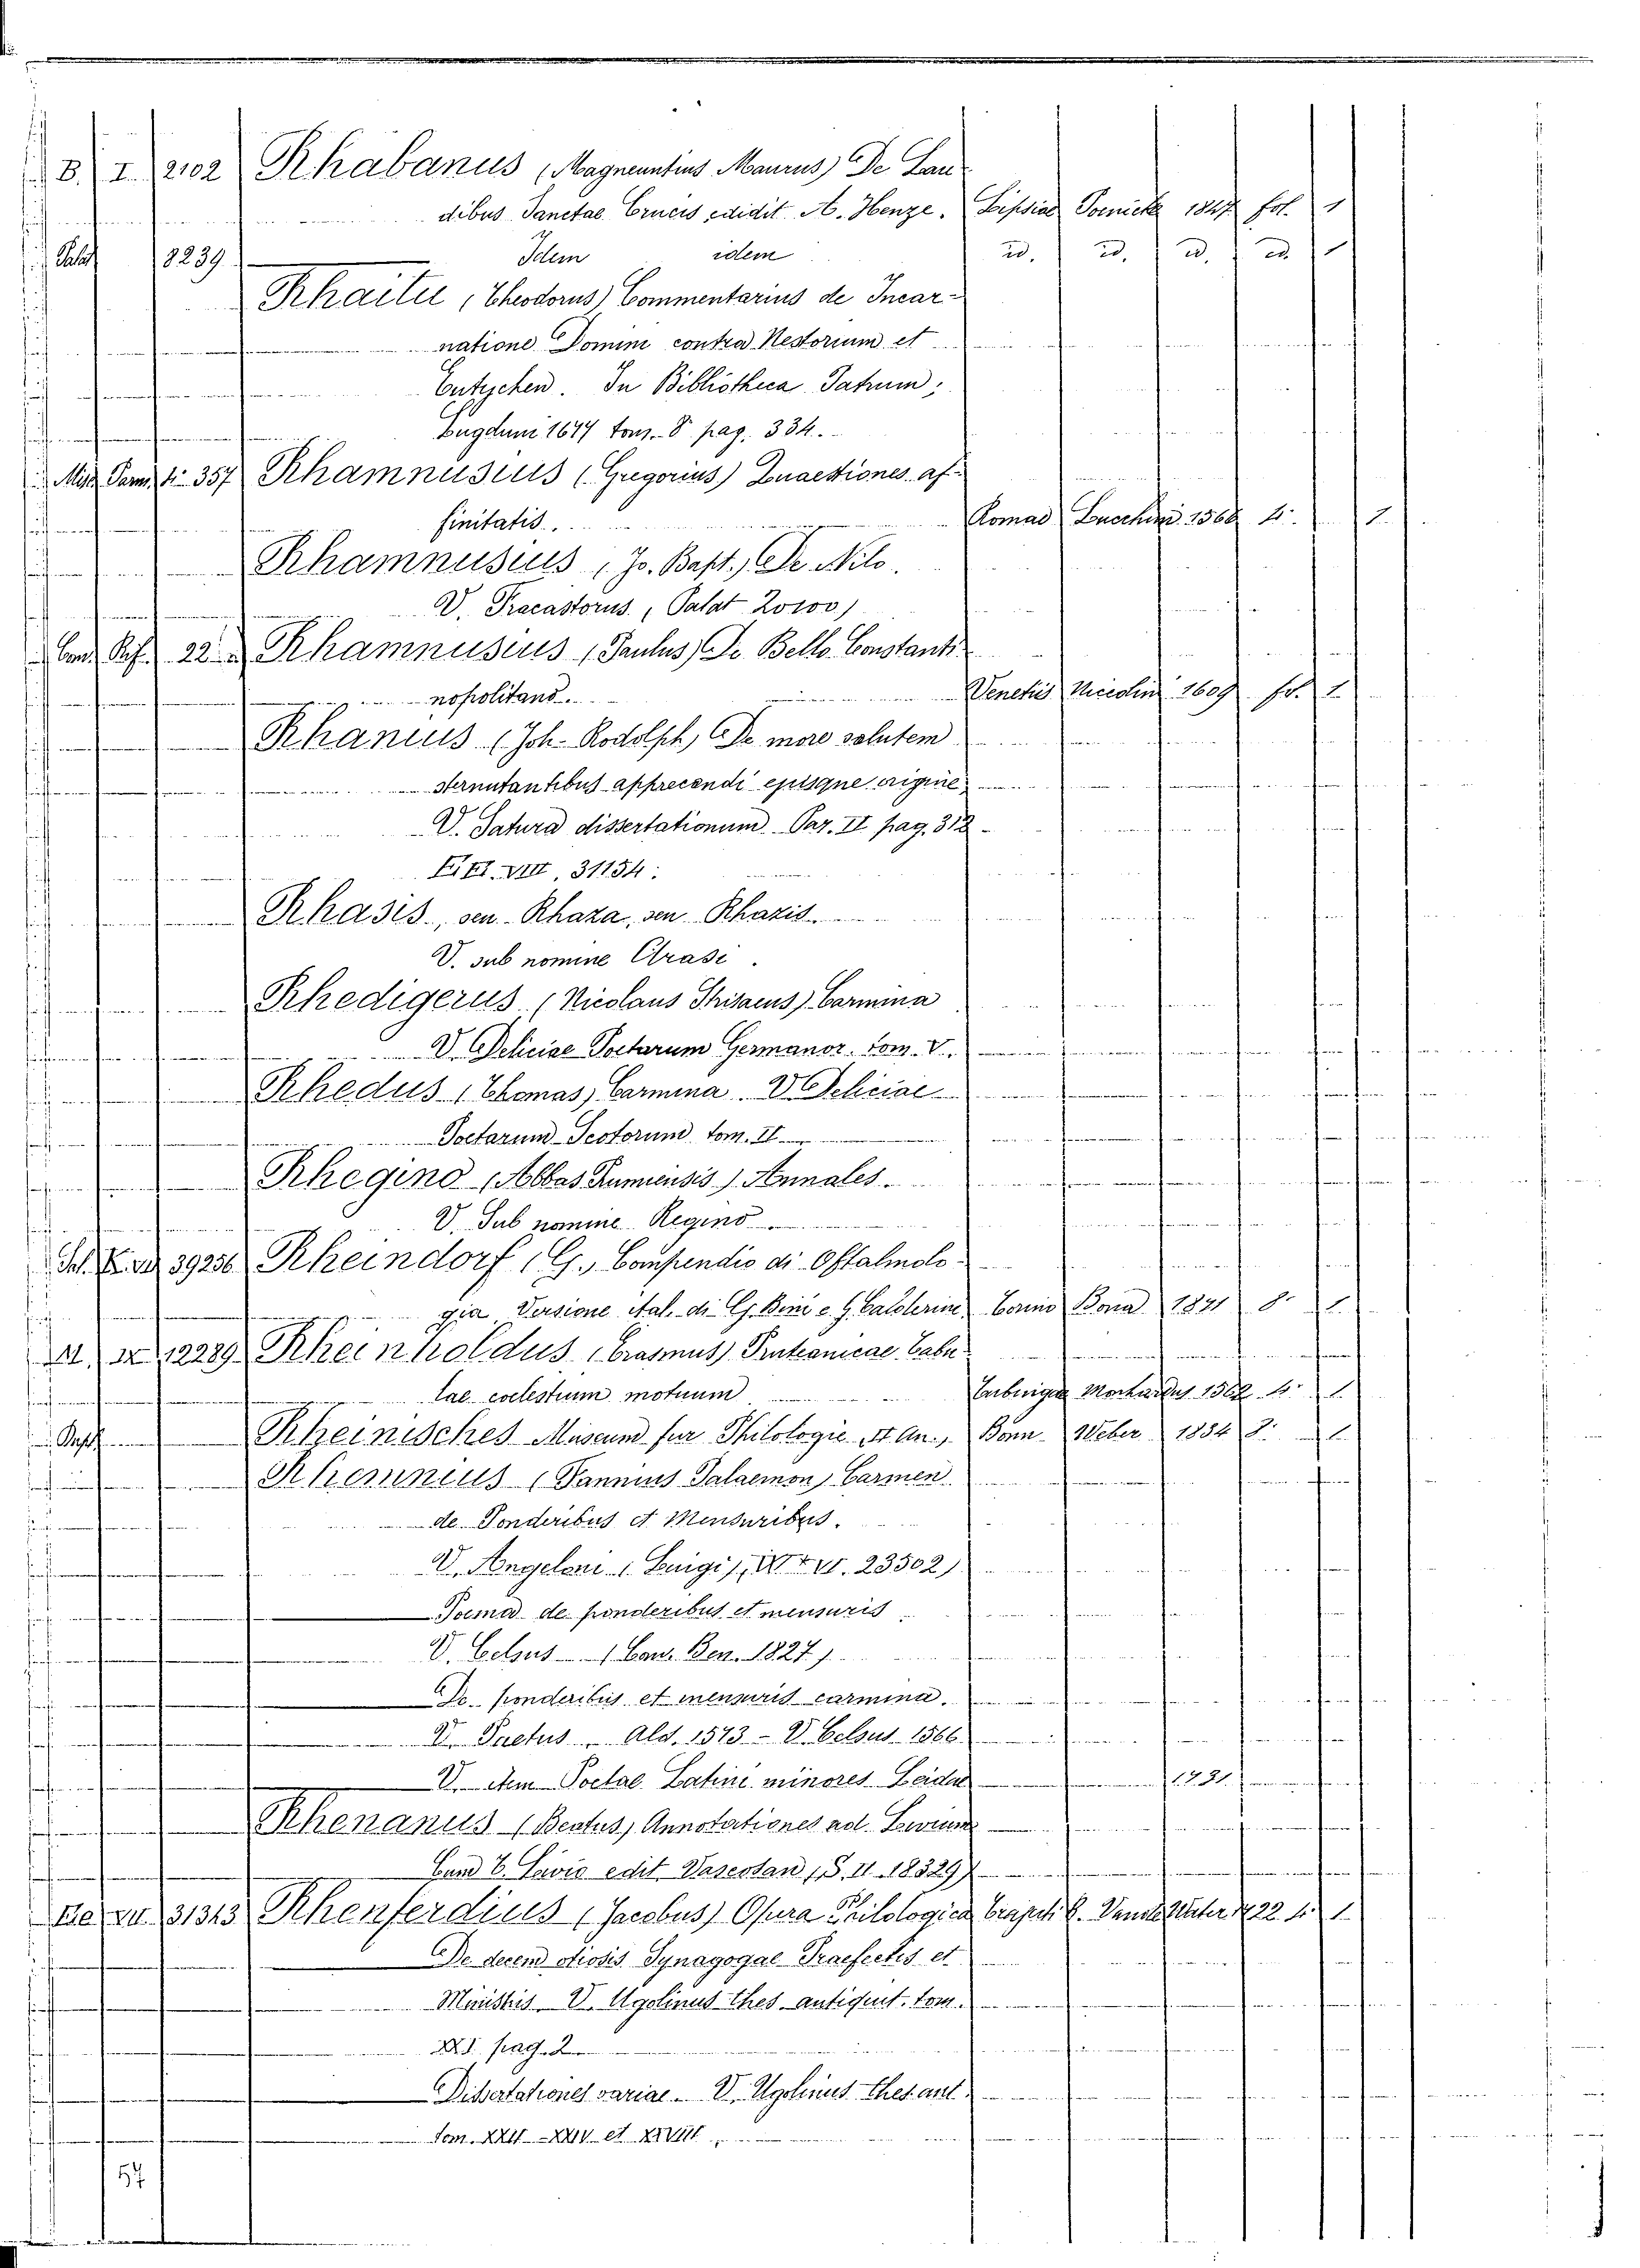 B. I. 2102 Rhabanus (Magnenntius Maurus) De Lau
dibus Sanctae Crucis edidit A. Henze. Lipsiae 1847 fol. 1
Palat 8239 Idem idem id. id. id. id. 1
Rhaitu (Theodorus) Commentarius de Incar-
natione Domini contra Nestorium et
Eutychen. In Bibliotheca Patrum,
Lugduni 1677 tom. 8° pag. 334.
Misc. 4. 357 Rhamnusius (Gregorius) Quaestiones af-
finitatis. Romae Lucchini 1568 4. 1
Rhamnusius (Jo. Bapt.) De Nilo.
V. Fracastorus (Palat
22 Rhamnusius (Paulus) De Bello Constanti
nopolitano. Venetiis Nicolini 1609 fo. 1
Rhanius (Joh. Rodolph) De more salutem
sternutantibus apprecandi ejusque origine
V. Satura dissertationum Par. II pag. 312
VIII, 31154.
Rhasis, seu Rhaza, seu Rhazis.
V. sub nomine Arasi.
Rhedigerus (Nicolaus) Carmina
V. Deliciae Poetarum Germanor. tom. V.
Rhedus (Thomas) Carmina V. Deliciae
Poetarum Scotorum tom. II.
Rhegino (Abbas Prumiensis) Annales.
V. Sub nomine Regino.
39256 Rheindorf (G.) Compendio di Oftalmolo
gia, Versione ital. di G. Bini e G. Calderini Torino Bona 1871 8° 1
12289 Rheinholdus (Erasmus) Prutenicae Tabu
lae coelestium motuum Tubingae Morhardus 1562 4° 1
Rheinisches Museum fur Philologie Bonn Weber 1834 8° 1
Rhemnius (Fannius Palaemon) Carmen
de Ponderibus et Mensuribus.
V. Angeloni (Luigi), 23502)
Poema de ponderibus et mensuris
V. Celsus (Ben. 1827)
De ponderibus et mensuris carmina.
V. Ald. 1513 – V. Celsus 1566
V. item Poetae Latini minores Leidae 1731
Rhenanus (Beatus) Annotationes ad Livium
Cum T. Livio edit. Vascosan (S. II. 18329)
31313 Rhenferdius (Jacobus) Opera Philologica Trajecti 1722 4. 1
De decem otiosis Synagogae Praefectis et
Ministris V. Ugolinus thes. antiquit. tom.
XXI pag. 2
Dissertationes variae. V. Ugolinus Thes. ant.
tom. XXII – XXIV et XXVIII
57